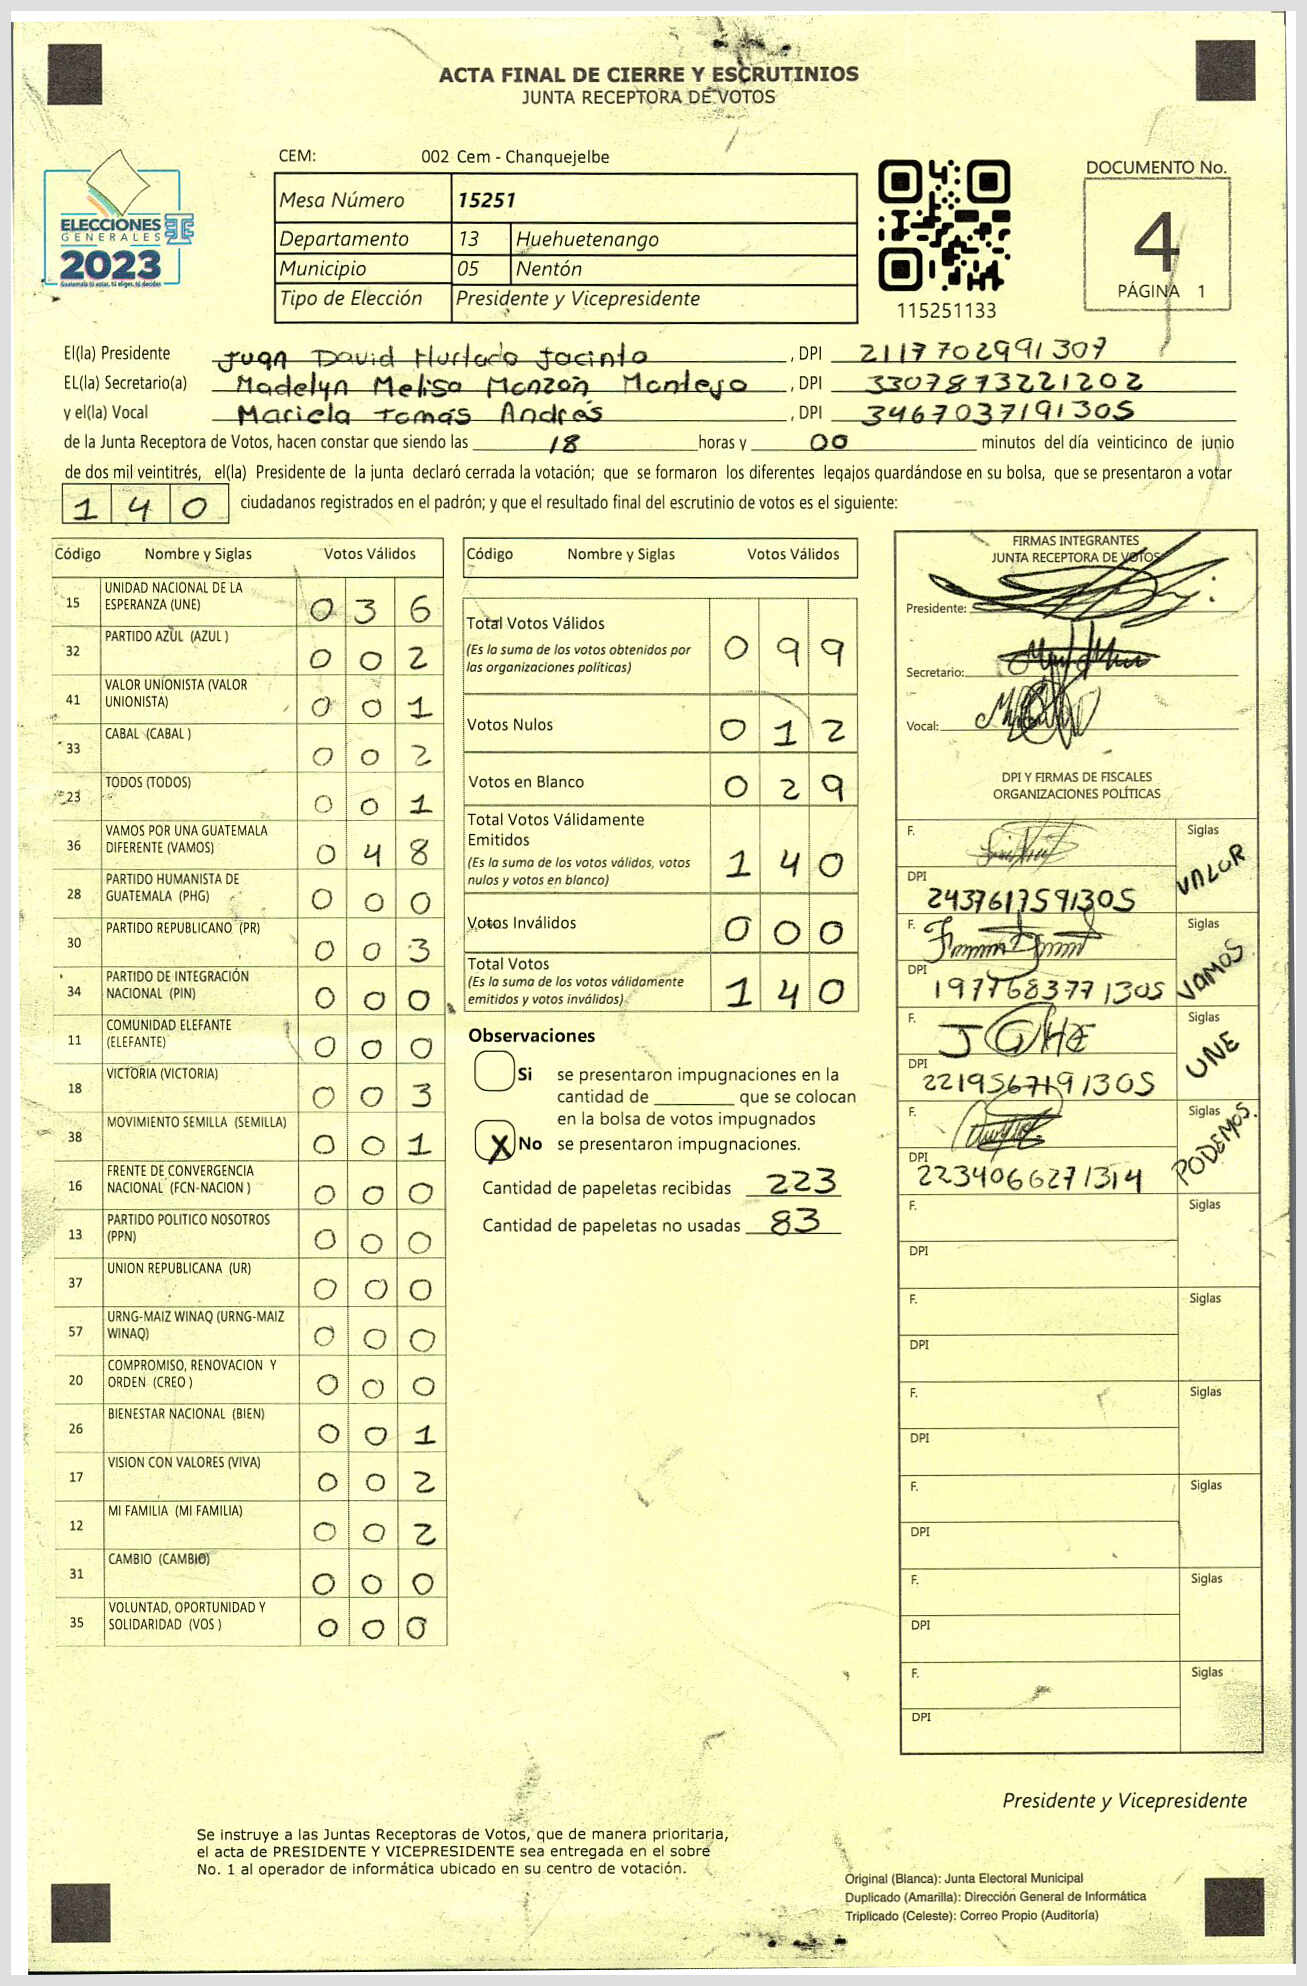 ACTA FINAL DE CIERRE Y ESCRUTINIOS
JUNTA RECEPTORA DE VOTOS
ELECCIONES
GENERALES
2023
Guatemala tú votas, tú eliges, tú decides
CEM: 002 Cem - Chanquejelbe
Mesa Número 15251
Departamento 13 Huehuetenango
Municipio 05 Nentón
Tipo de Elección Presidente y Vicepresidente
115251133
DOCUMENTO No.
4
PÁGINA 1
El(la) Presidente Juan David Hurtado Jacinto , DPI 2117702991307
EL(la) Secretario(a) Madelyn Melisa Monzon Montejo , DPI 3307873221202
y el(la) Vocal Mariela Tomás Andrés , DPI 3467037191305
de la Junta Receptora de Votos, hacen constar que siendo las 18 horas y 00 minutos del día veinticinco de junio
de dos mil veintitrés, el(la) Presidente de la junta declaró cerrada la votación; que se formaron los diferentes legajos guardándose en su bolsa, que se presentaron a votar
140 ciudadanos registrados en el padrón; y que el resultado final del escrutinio de votos es el siguiente:
Código Nombre y Siglas Votos Válidos
15 UNIDAD NACIONAL DE LA ESPERANZA (UNE) 0 3 6
32 PARTIDO AZUL (AZUL ) 0 0 2
41 VALOR UNIONISTA (VALOR UNIONISTA) 0 0 1
33 CABAL (CABAL ) 0 0 2
23 TODOS (TODOS) 0 0 1
36 VAMOS POR UNA GUATEMALA DIFERENTE (VAMOS) 0 4 8
28 PARTIDO HUMANISTA DE GUATEMALA (PHG) 0 0 0
30 PARTIDO REPUBLICANO (PR) 0 0 3
34 PARTIDO DE INTEGRACIÓN NACIONAL (PIN) 0 0 0
11 COMUNIDAD ELEFANTE (ELEFANTE) 0 0 0
18 VICTORIA (VICTORIA) 0 0 3
38 MOVIMIENTO SEMILLA (SEMILLA) 0 0 1
16 FRENTE DE CONVERGENCIA NACIONAL (FCN-NACION ) 0 0 0
13 PARTIDO POLITICO NOSOTROS (PPN) 0 0 0
37 UNION REPUBLICANA (UR) 0 0 0
57 URNG-MAIZ WINAQ (URNG-MAIZ WINAQ) 0 0 0
20 COMPROMISO, RENOVACION Y ORDEN (CREO ) 0 0 0
26 BIENESTAR NACIONAL (BIEN) 0 0 1
17 VISION CON VALORES (VIVA) 0 0 2
12 MI FAMILIA (MI FAMILIA) 0 0 2
31 CAMBIO (CAMBIO) 0 0 0
35 VOLUNTAD, OPORTUNIDAD Y SOLIDARIDAD (VOS ) 0 0 0
Código Nombre y Siglas Votos Válidos
Total Votos Válidos 0 9 9
(Es la suma de los votos obtenidos por
las organizaciones políticas)
Votos Nulos 0 1 2
Votos en Blanco 0 2 9
Total Votos Válidamente
Emitidos 1 4 0
(Es la suma de los votos válidos, votos
nulos y votos en blanco)
Votos Inválidos 0 0 0
Total Votos 1 4 0
(Es la suma de los votos válidamente
emitidos y votos inválidos)
Observaciones
Si se presentaron impugnaciones en la
cantidad de ________ que se colocan
en la bolsa de votos impugnados
X No se presentaron impugnaciones.
Cantidad de papeletas recibidas 223
Cantidad de papeletas no usadas 83
FIRMAS INTEGRANTES
JUNTA RECEPTORA DE VOTOS
Presidente:
Secretario:
Vocal:
DPI Y FIRMAS DE FISCALES
ORGANIZACIONES POLÍTICAS
F. Siglas VALOR
DPI 2437617591305
F. Siglas VAMOS
DPI 1977683771305
F. Siglas UNE
DPI 2219567191305
F. Siglas PODEMOS.
DPI 2234066271314
F. Siglas
DPI
F. Siglas
DPI
F. Siglas
DPI
F. Siglas
DPI
F. Siglas
DPI
F. Siglas
DPI
Presidente y Vicepresidente
Se instruye a las Juntas Receptoras de Votos, que de manera prioritaria,
el acta de PRESIDENTE Y VICEPRESIDENTE sea entregada en el sobre
No. 1 al operador de informática ubicado en su centro de votación.
Original (Blanca): Junta Electoral Municipal
Duplicado (Amarilla): Dirección General de Informática
Triplicado (Celeste): Correo Propio (Auditoría)